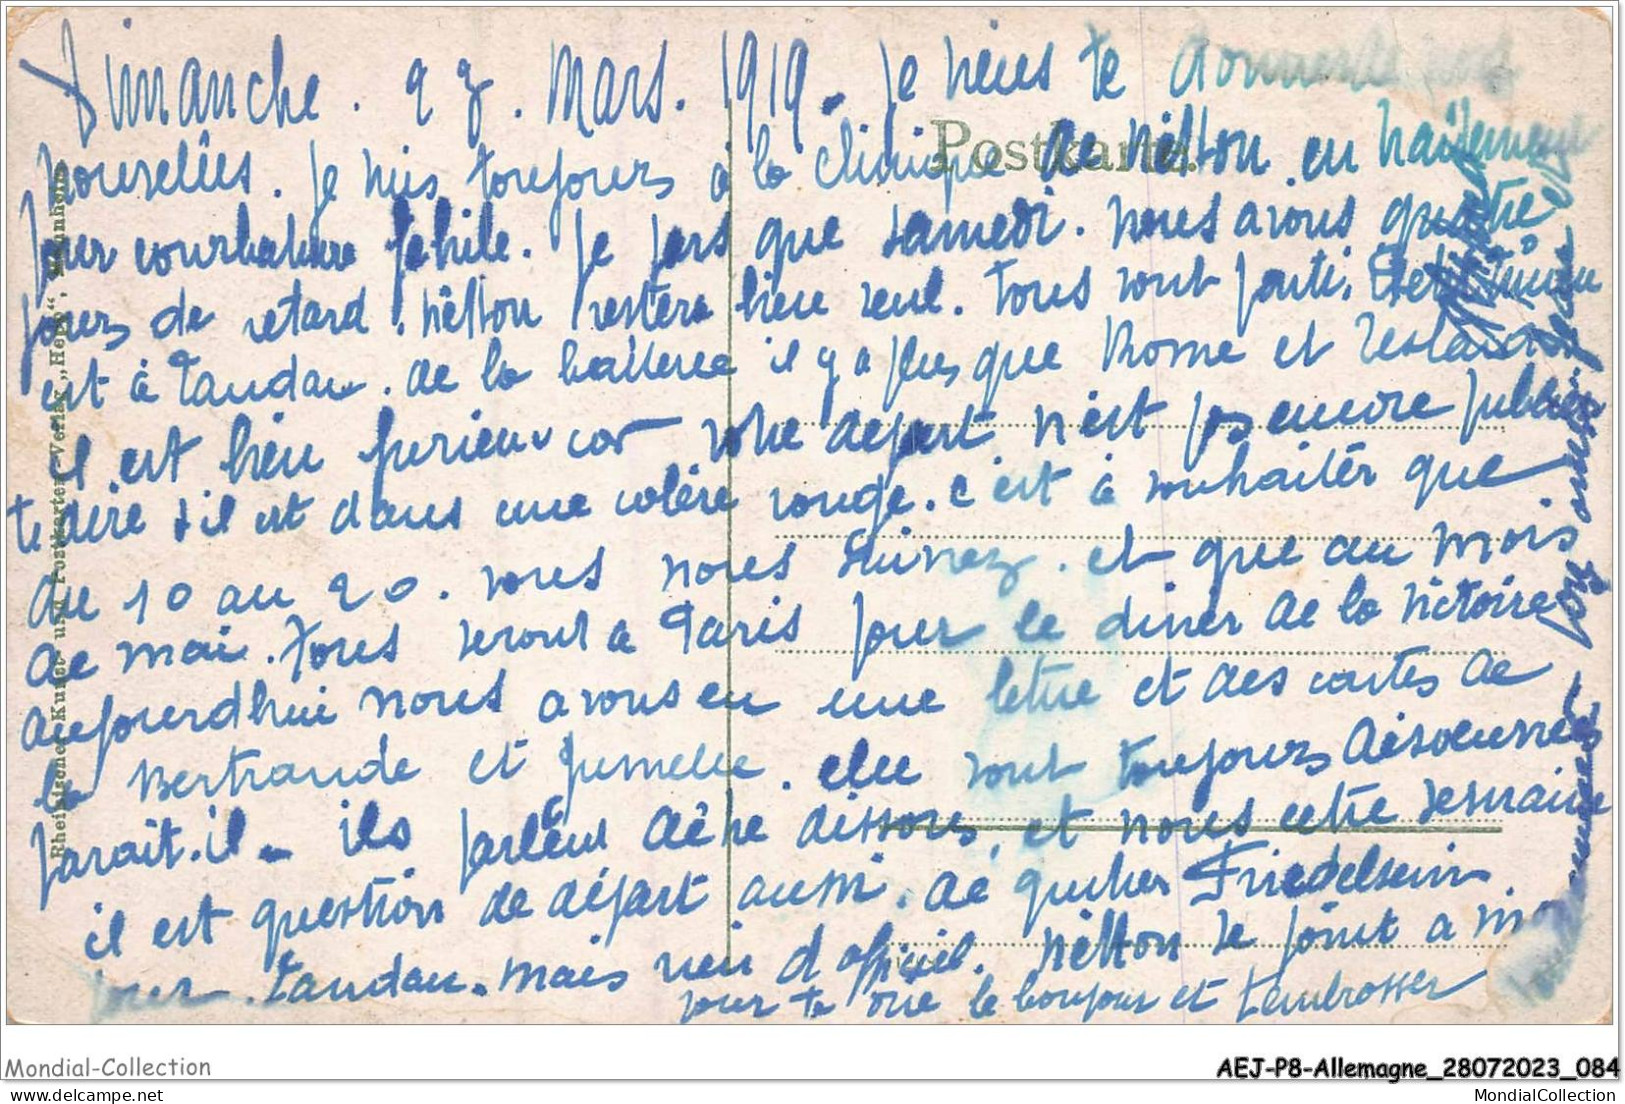 Dimanche. 23. Mars. 1919. Je viens te donner de nos
Postkarte.
nouvelles. Je suis toujours à la clinique de Nitton en traitement
pour courbature fébrile. Je sors que samedi. nous avons quatre
jours de retard. Nitton restera bien seul. Tous sont parti.
est à Landau. de la batterie il y a plus que Rome et
il est bien furieux car votre départ n'est pas encore
te dire s'il est dans une colère rouge. C'est à souhaiter que
du 10 au 20. vous nous suivrez. et que au mois
de mai. Tous seront a Paris pour le diner de la Victoire
aujourdhui nous avons eu une lettre et des cartes de
la Bertrande et Jumelle. elle sont toujours désoeuvrées
parait.il. ils parlent de ne dissous, et nous cette semaine
il est question de départ aussi. de quitter Friedelsein.
pour Landau. mais rien d officiel. Nitton se joint a m
pour te dire le bonjour et t'embrasser
Rheinischer Kunst- und Postkarten-Verlag „Hera“, Mannheim
Mondial-Collection
AEJ-P8-Allemagne_28072023_084
MondialCollection